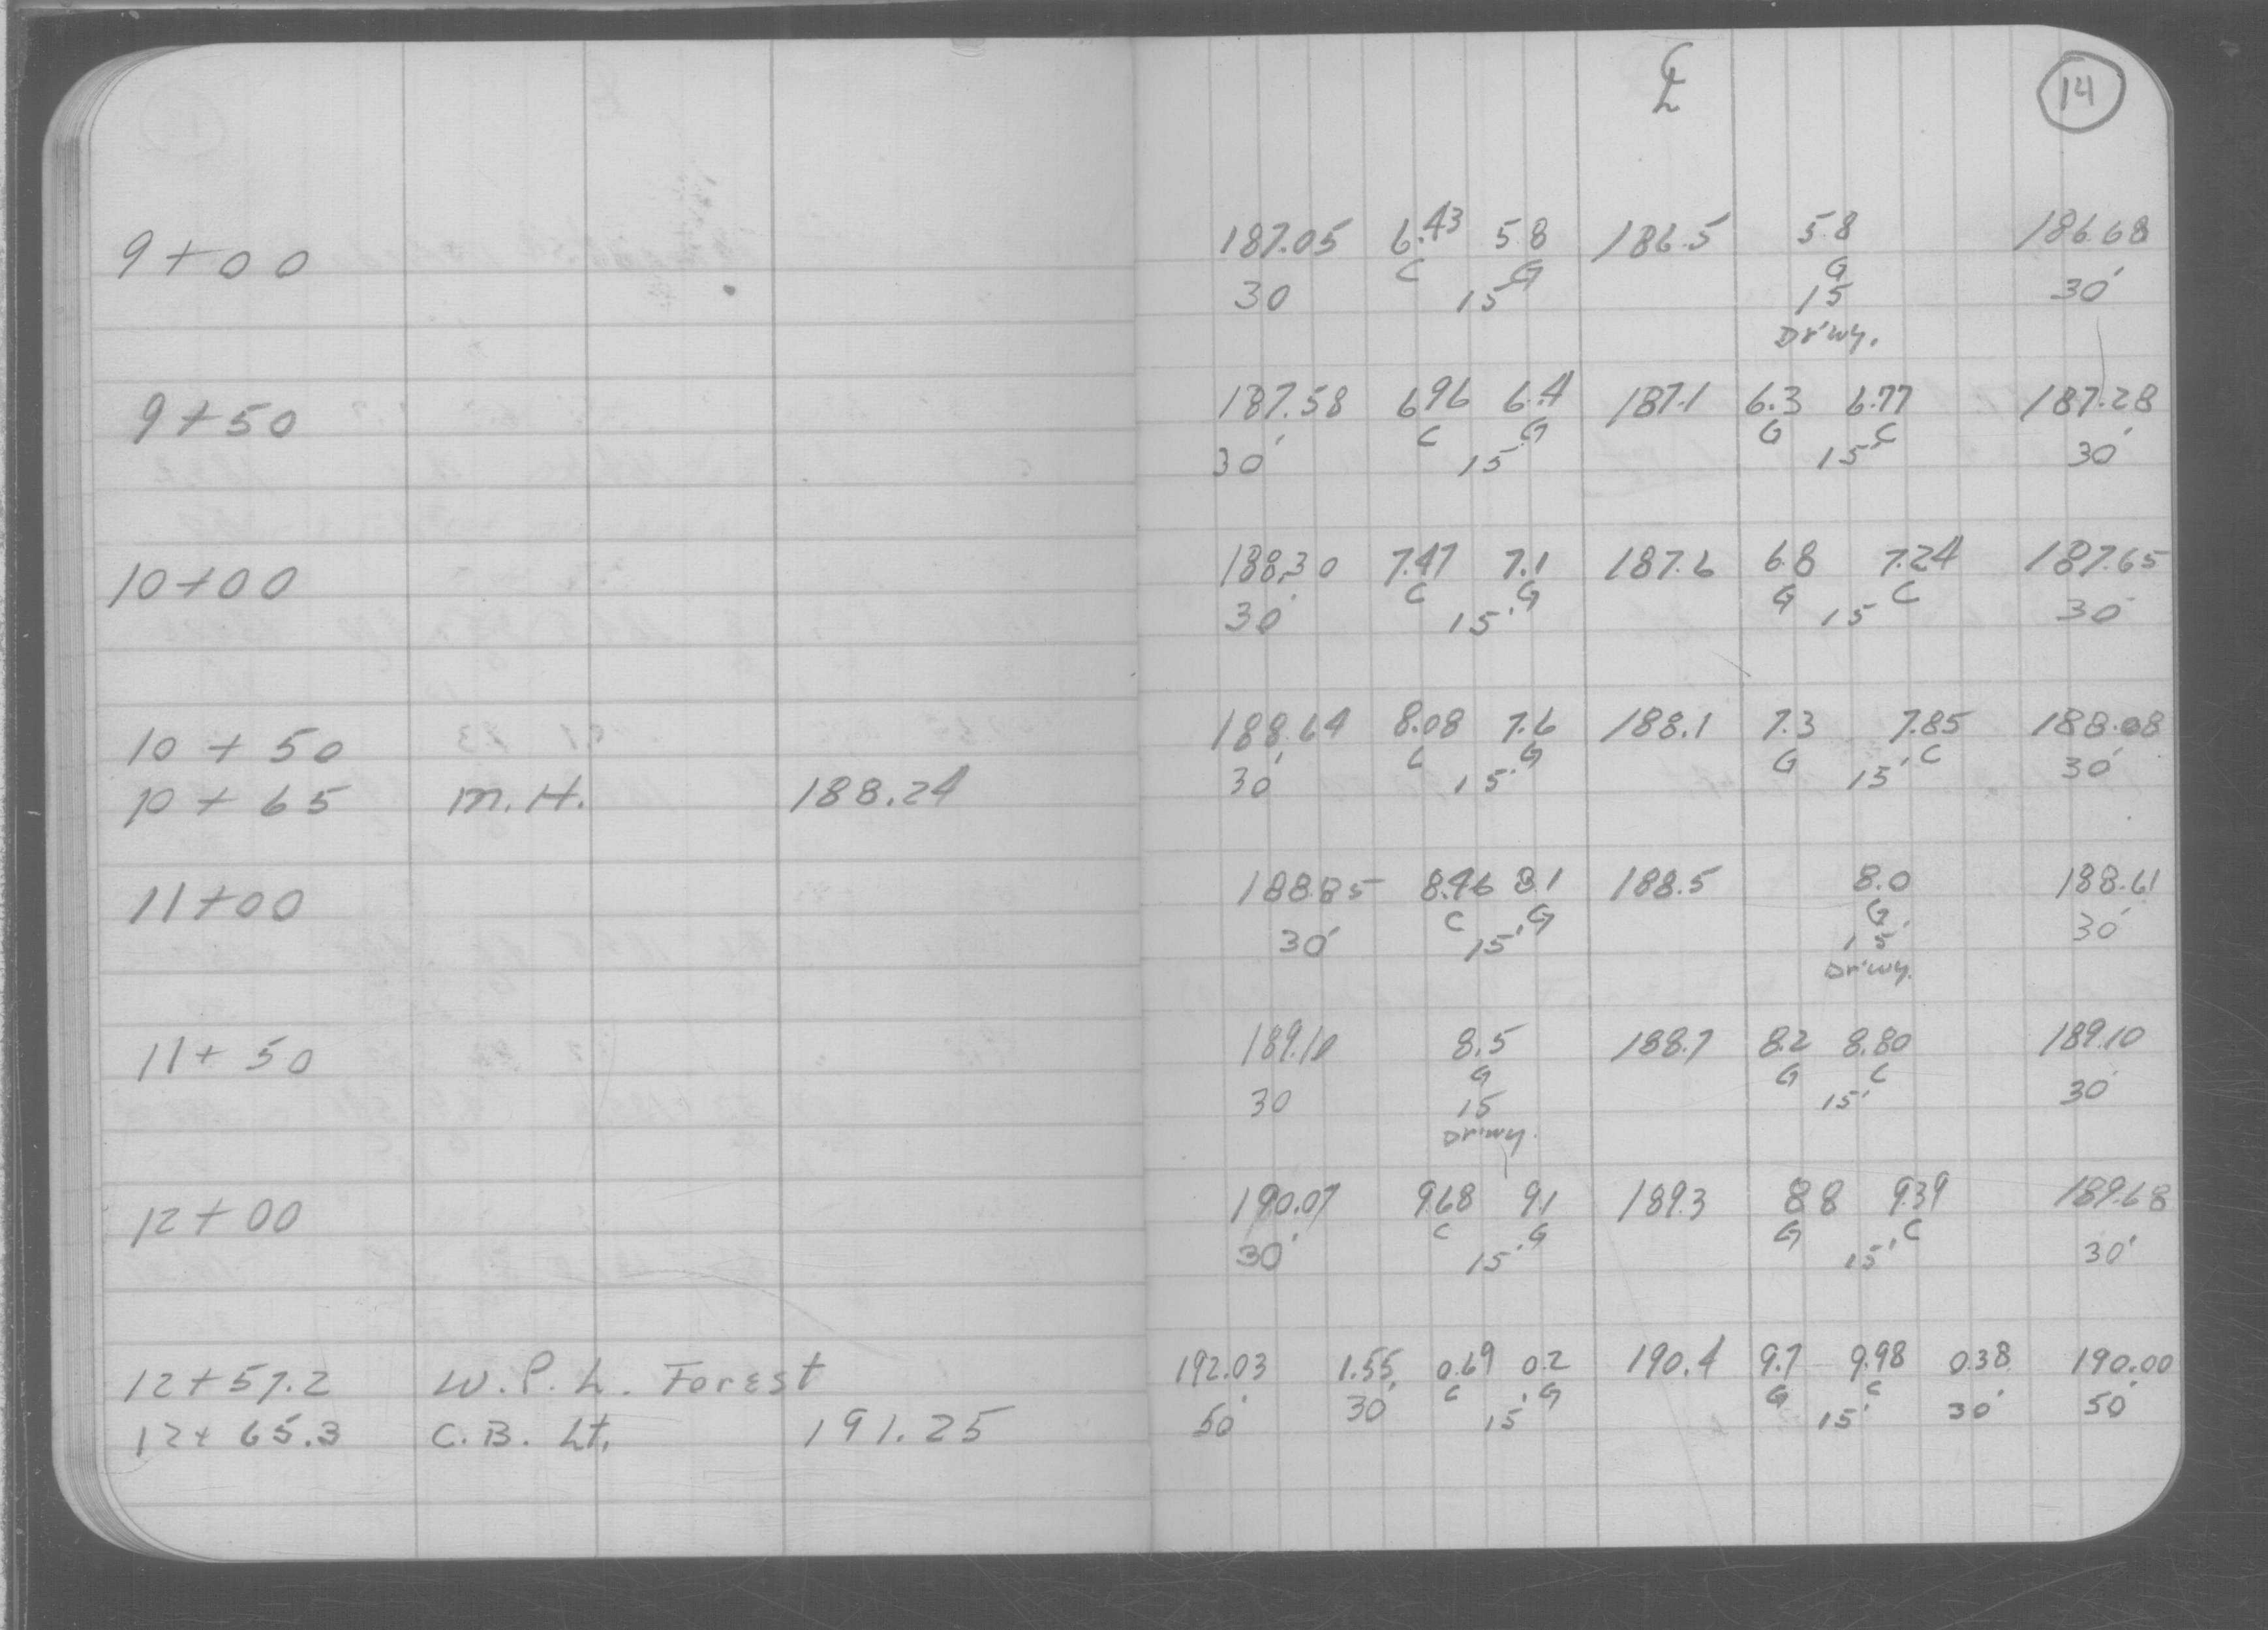 ℄ 14
9+00 187.05 6.43 5.8 186.5 5.8 186.68
C G G
30 15 15 30'
Dr'wy.
9+50 187.58 6.96 6.4 187.1 6.3 6.77 187.28
C G G C
30' 15' 15' 30'
10+00 188.30 7.47 7.1 187.6 6.8 7.24 187.65
C G G C
30' 15' 15' 30'
10+50 188.64 8.08 7.6 188.1 7.3 7.85 188.08
C G G C
30' 15' 15' 30'
10+65 M.H. 188.24
11+00 188.85 8.46 8.1 188.5 8.0 188.61
C G G
30' 15' 15' 30'
Dr'wy.
11+50 189.10 8.5 188.7 8.2 8.80 189.10
G G C
30 15 15' 30'
Dr'wy.
12+00 190.07 9.68 9.1 189.3 8.8 9.39 189.68
C G G C
30' 15' 15' 30'
12+57.2 W.P.L. Forest 192.03 1.55 0.69 0.2 190.4 9.7 9.98 0.38 190.00
C G G C
50' 30' 15' 15' 30' 50'
12+65.3 C.B. Lt. 191.25